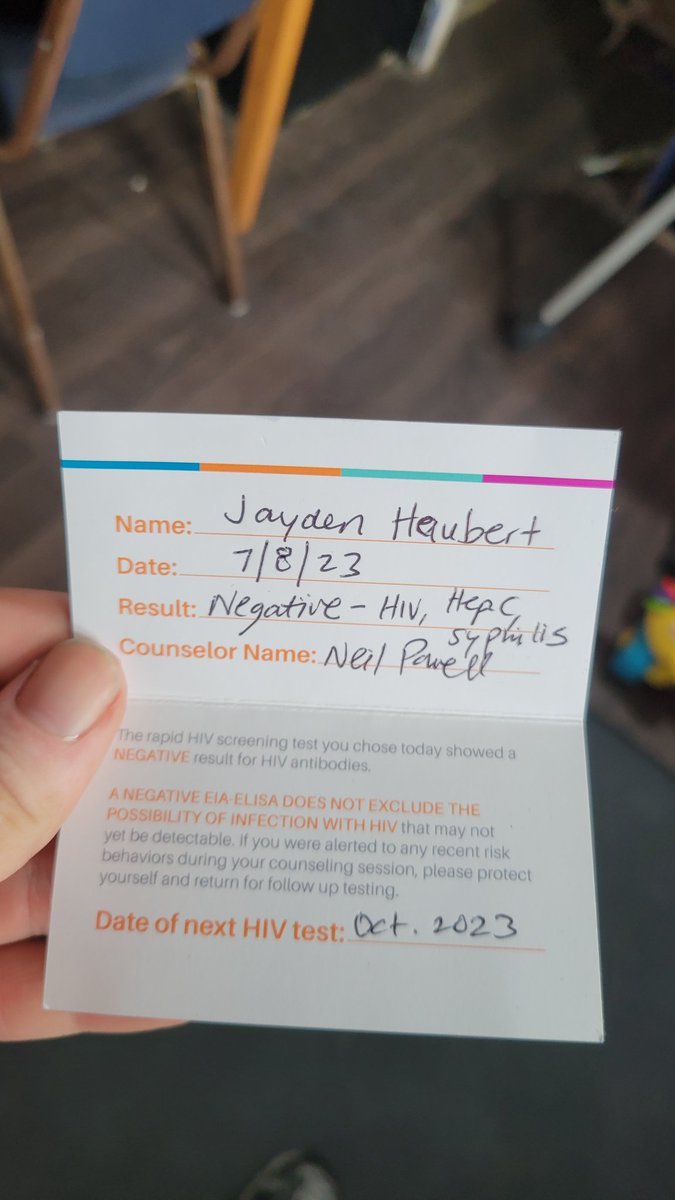 Name: Jayden Haubert
Date: 7/8/23
Result: Negative - HIV, Hep C,
syphilis
Counselor Name: Neil Powell
The rapid HIV screening test you chose today showed a
NEGATIVE result for HIV antibodies.
A NEGATIVE EIA-ELISA DOES NOT EXCLUDE THE
POSSIBILITY OF INFECTION WITH HIV that may not
yet be detectable. If you were alerted to any recent risk
behaviors during your counseling session, please protect
yourself and return for follow up testing.
Date of next HIV test: Oct. 2023